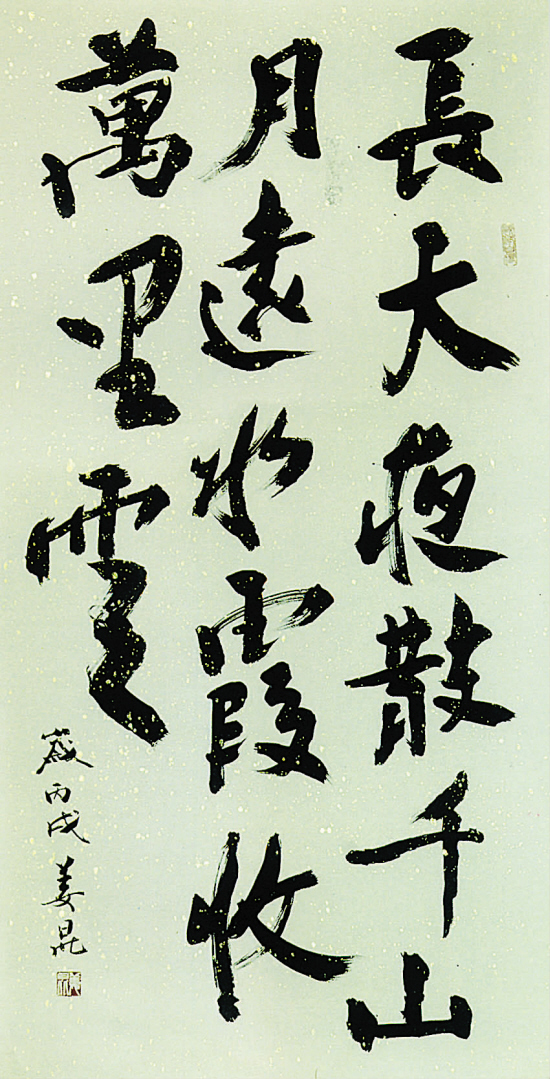 長大夜散千山
月遠水霞收
萬里雲
歲丙戌 姜昆